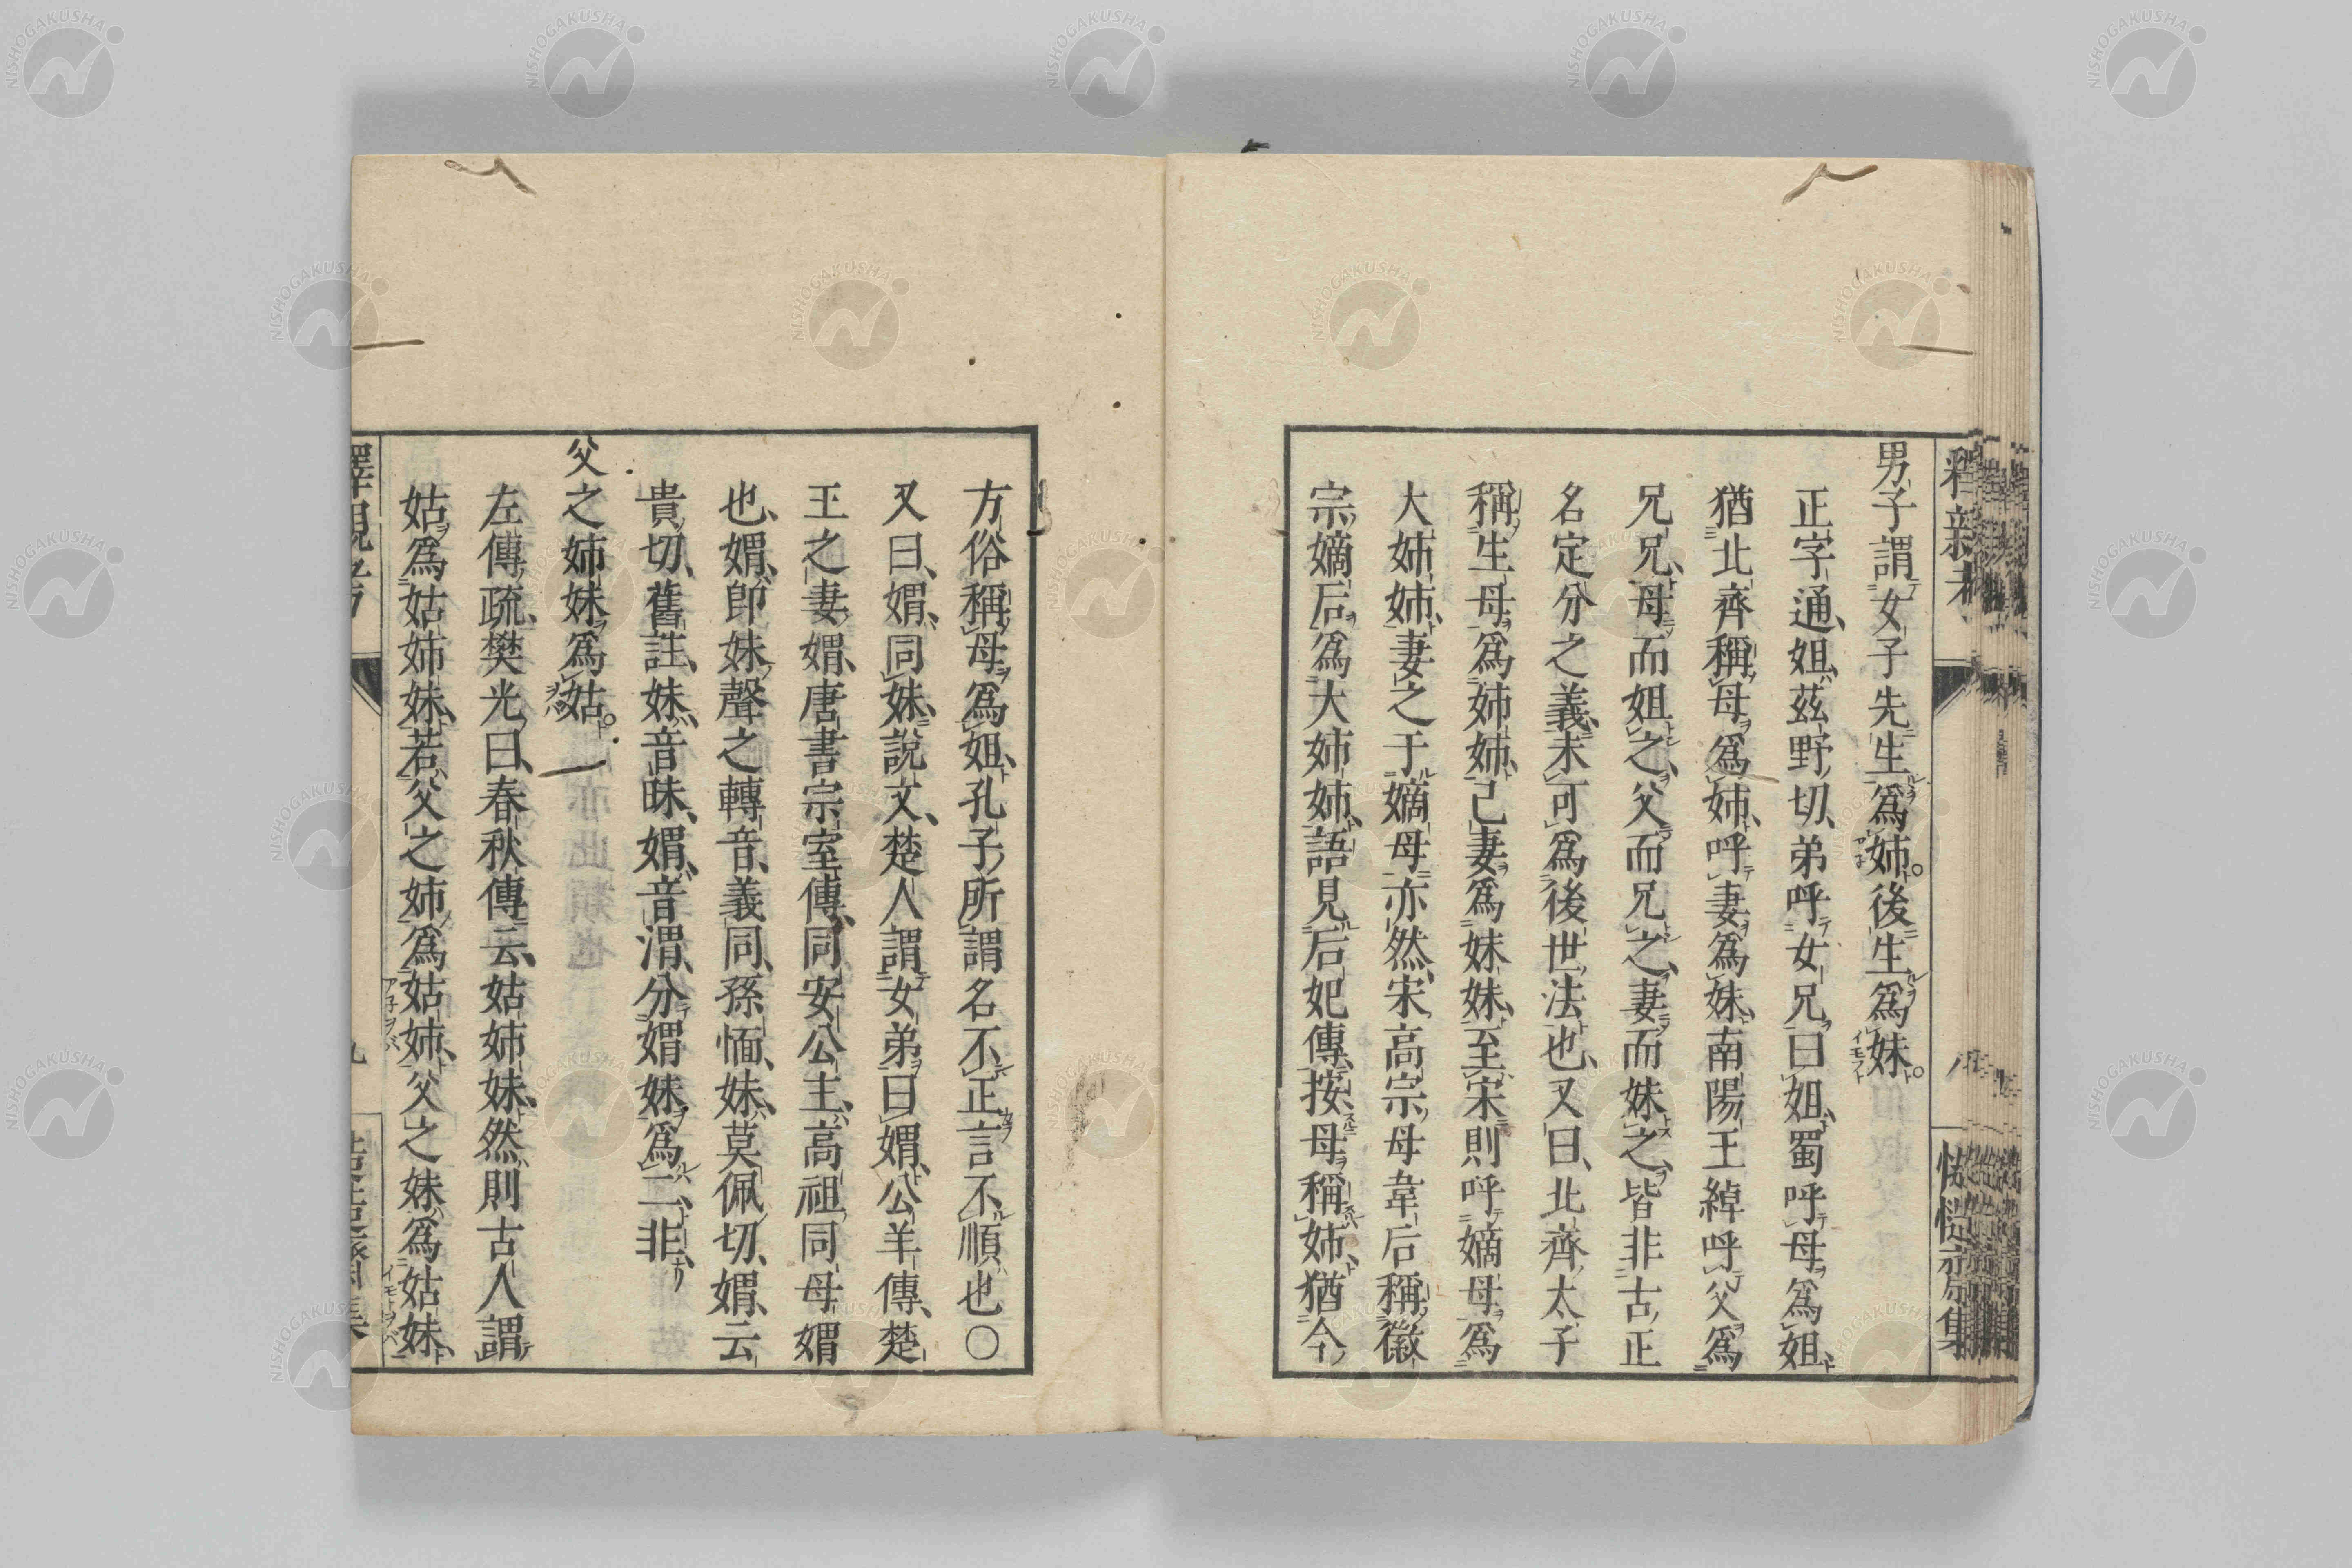 男子謂女子先生爲姉。後生爲妹。
正字通、姐、茲野切、弟呼女兄曰姐、蜀呼母爲姐、
猶北齊稱母爲姉、呼妻爲妹、南陽王綽呼父爲
兄兄、母而姐之、父而兄之、妻而妹之、皆非古正
名定分之義、未可爲後世法也、又曰、北齊太子
稱生母爲姉姉、己妻爲妹妹、至宋則呼嫡母爲
大姉姉、妻之于嫡母亦然、宋高宗母韋后稱徽
宗嫡后爲大姉姉、語見后妃傳、按母稱姉、猶今
方俗稱母爲姐、孔子所謂名不正言不順也〇
又曰、媦、同妹、說文、楚人謂女弟曰媦、公羊傳、楚
王之妻媦、唐書宗室傳、同安公主、高祖同母媦
也、媦、卽妹聲之轉、音義同、孫愐、妹、莫佩切、媦、云
貴切、舊註、妹、音昧、媦、音渭、分媦妹爲二、非、
父之姉妹爲姑。
左傳疏、樊光曰、春秋傳云、姑姉妹、然則古人謂
姑爲姑姉妹、若父之姉爲姑姉、父之妹爲姑妹、
九
NISHOGAKUSHA